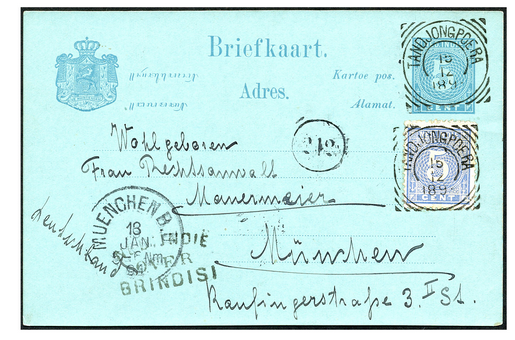 Briefkaart.
Kartoe pos.
Adres.
Alamat.
TANDJONGPOERA
15
12
189
5
CENT
TANDJONGPOERA
15
12
189
5
CENT
Wohlgeboren
Frau Rechtsanwalt
Mauermeier
München
Kaufingerstraße 3. II St.
MUENCHEN B.
18
JAN.
INDIE
OVER
BRINDISI